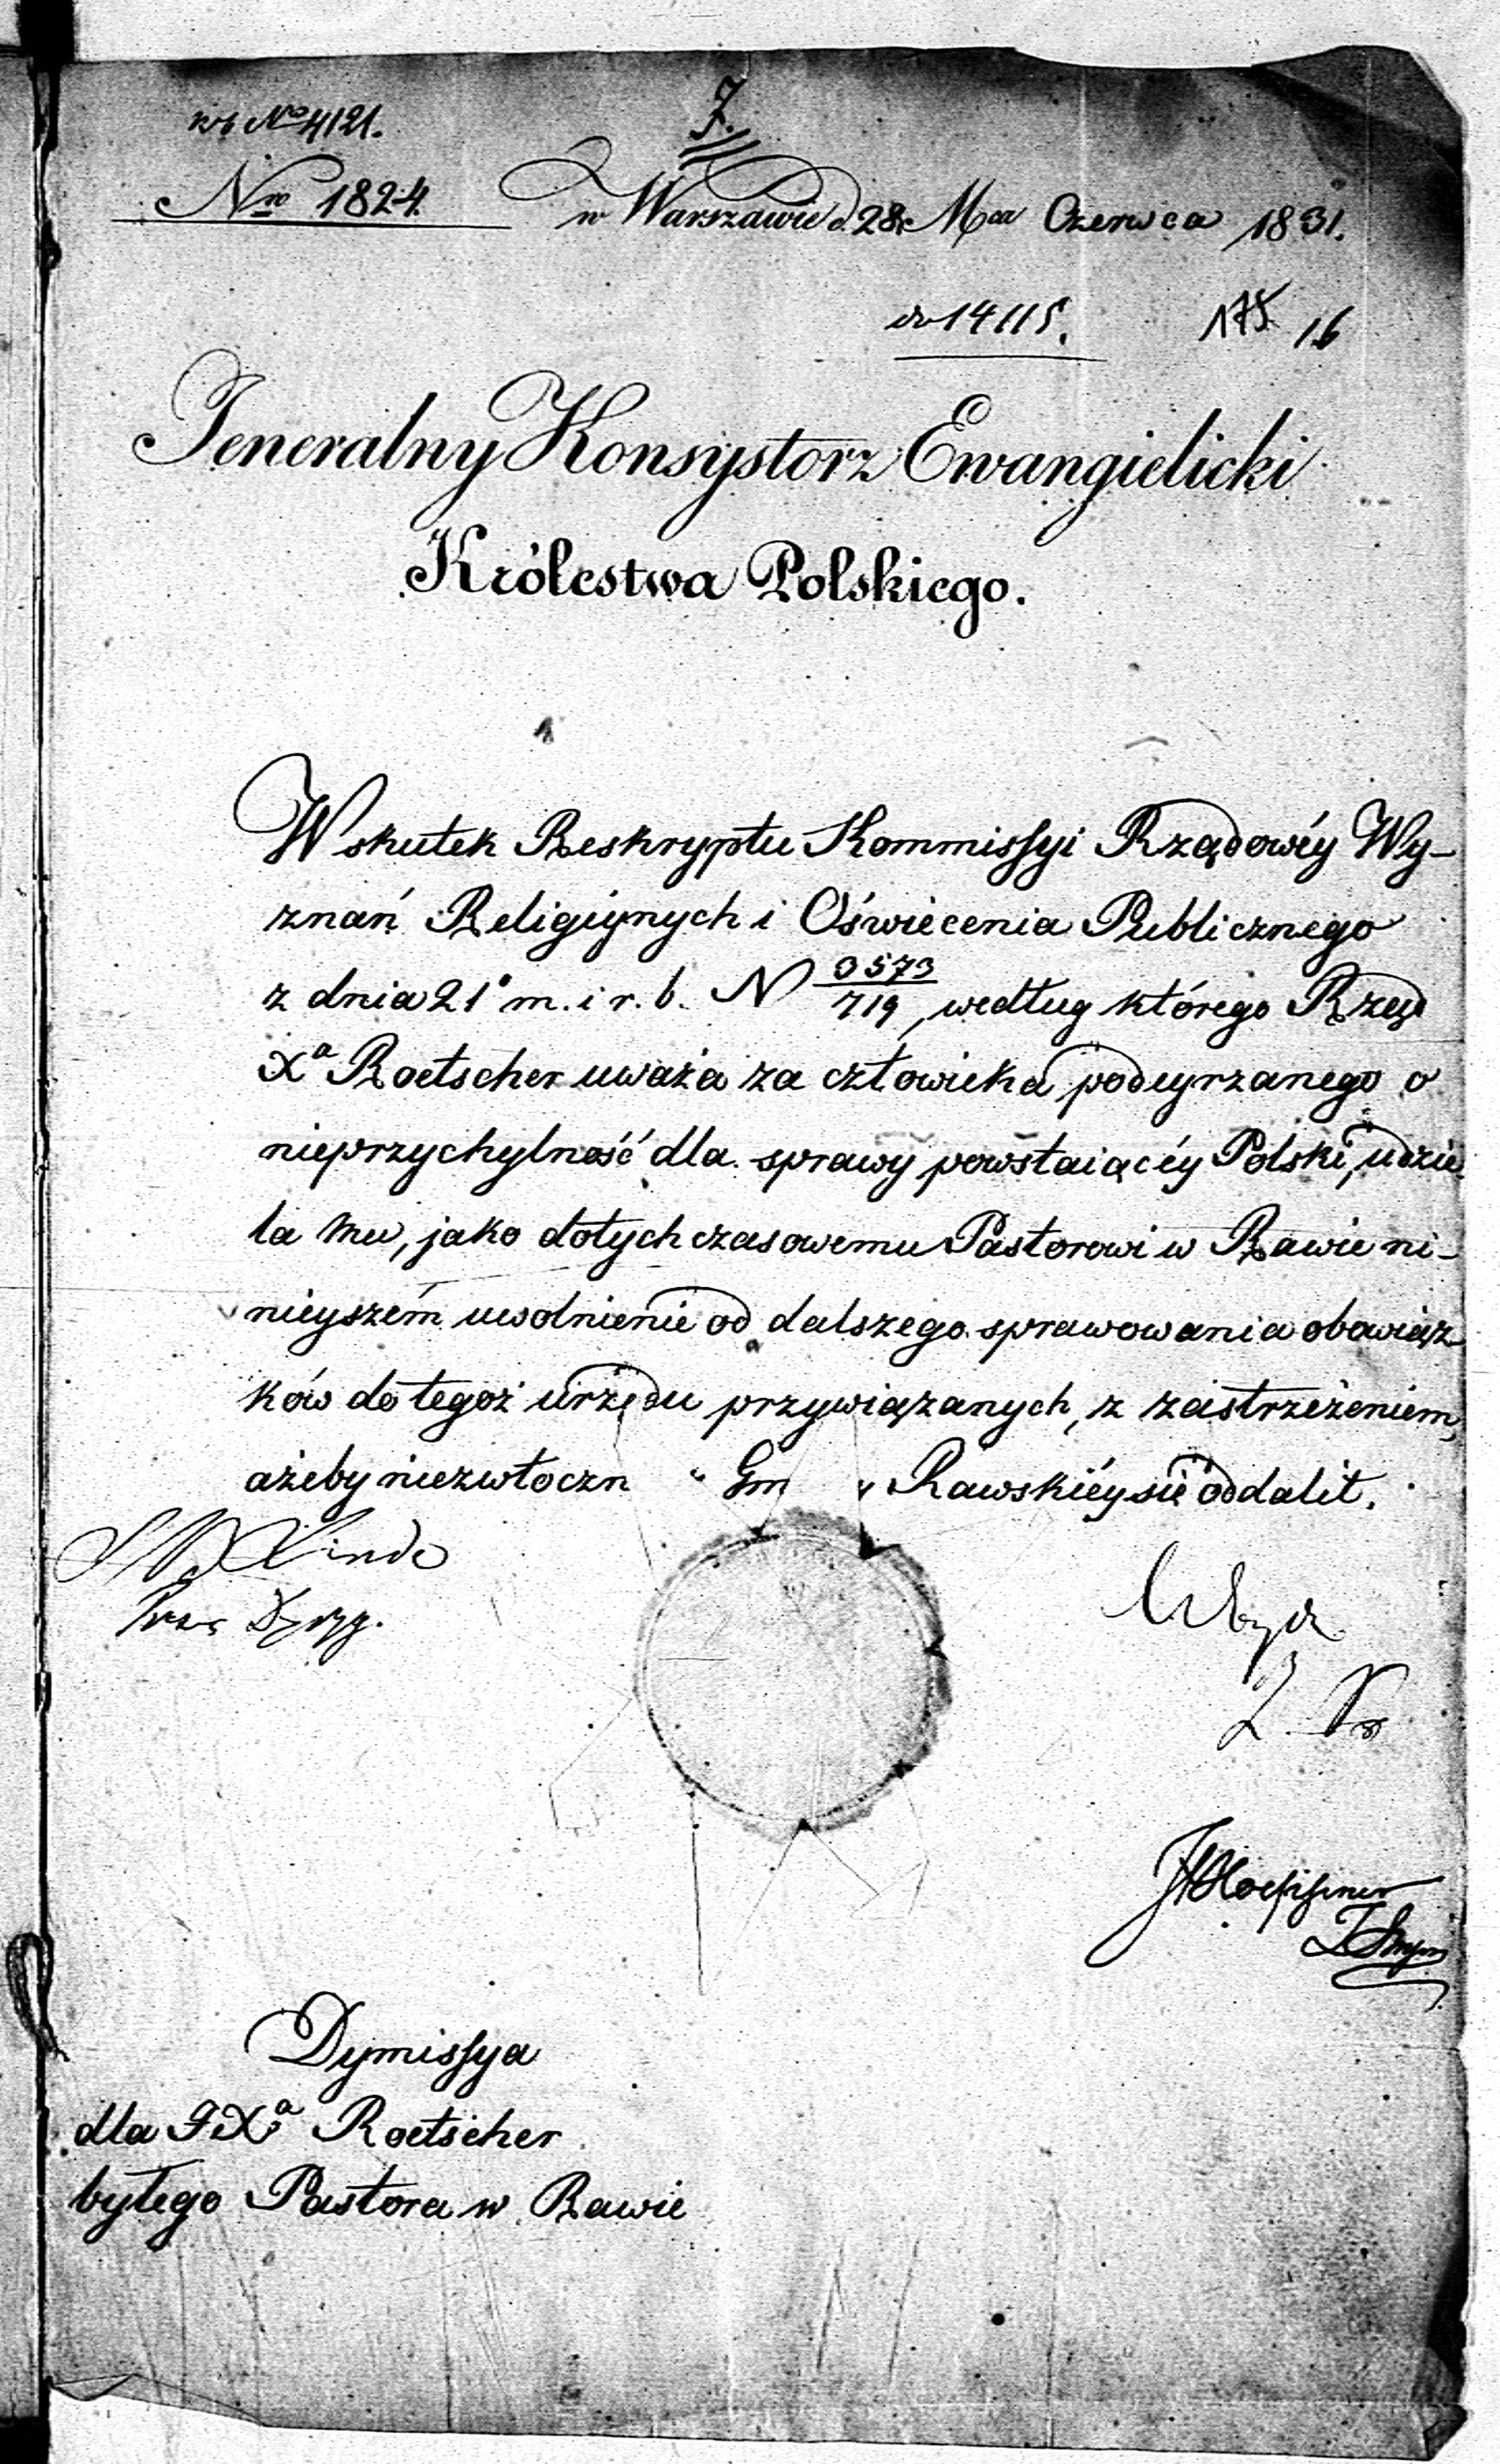 No 4121.
7.
Nro 1824.
w Warszawie d. 28 Mca Czerwca 1831.
do 14115. 175 16
Jeneralny Konsystorz Ewangielicki
Królestwa Polskiego.
W skutek Reskryptu Kommissyi Rządowéy Wy-
znań Religiynych i Oświecenia Publicznego
z dnia 21° m. i r. b. N 3573/719, według którego Rząd
Xa Roetscher uważa za człowieka podeyrzanego o
nieprzychylność dla sprawy powstaiącéy Polski, udzie
la mu, jako dotychczasowemu Pastorowi w Rawie ni-
nieyszém uwolnienie od dalszego sprawowania obowiąz
ków do tegoż urzędu przywiązanych, z zastrzeżeniem,
ażeby niezwłoczn Gm Rawskiéy się oddalił.
Linde
Prez. Dyryg.
JHoessner
Dymissya
dla JXa Roetscher
byłego Pastora w Rawie